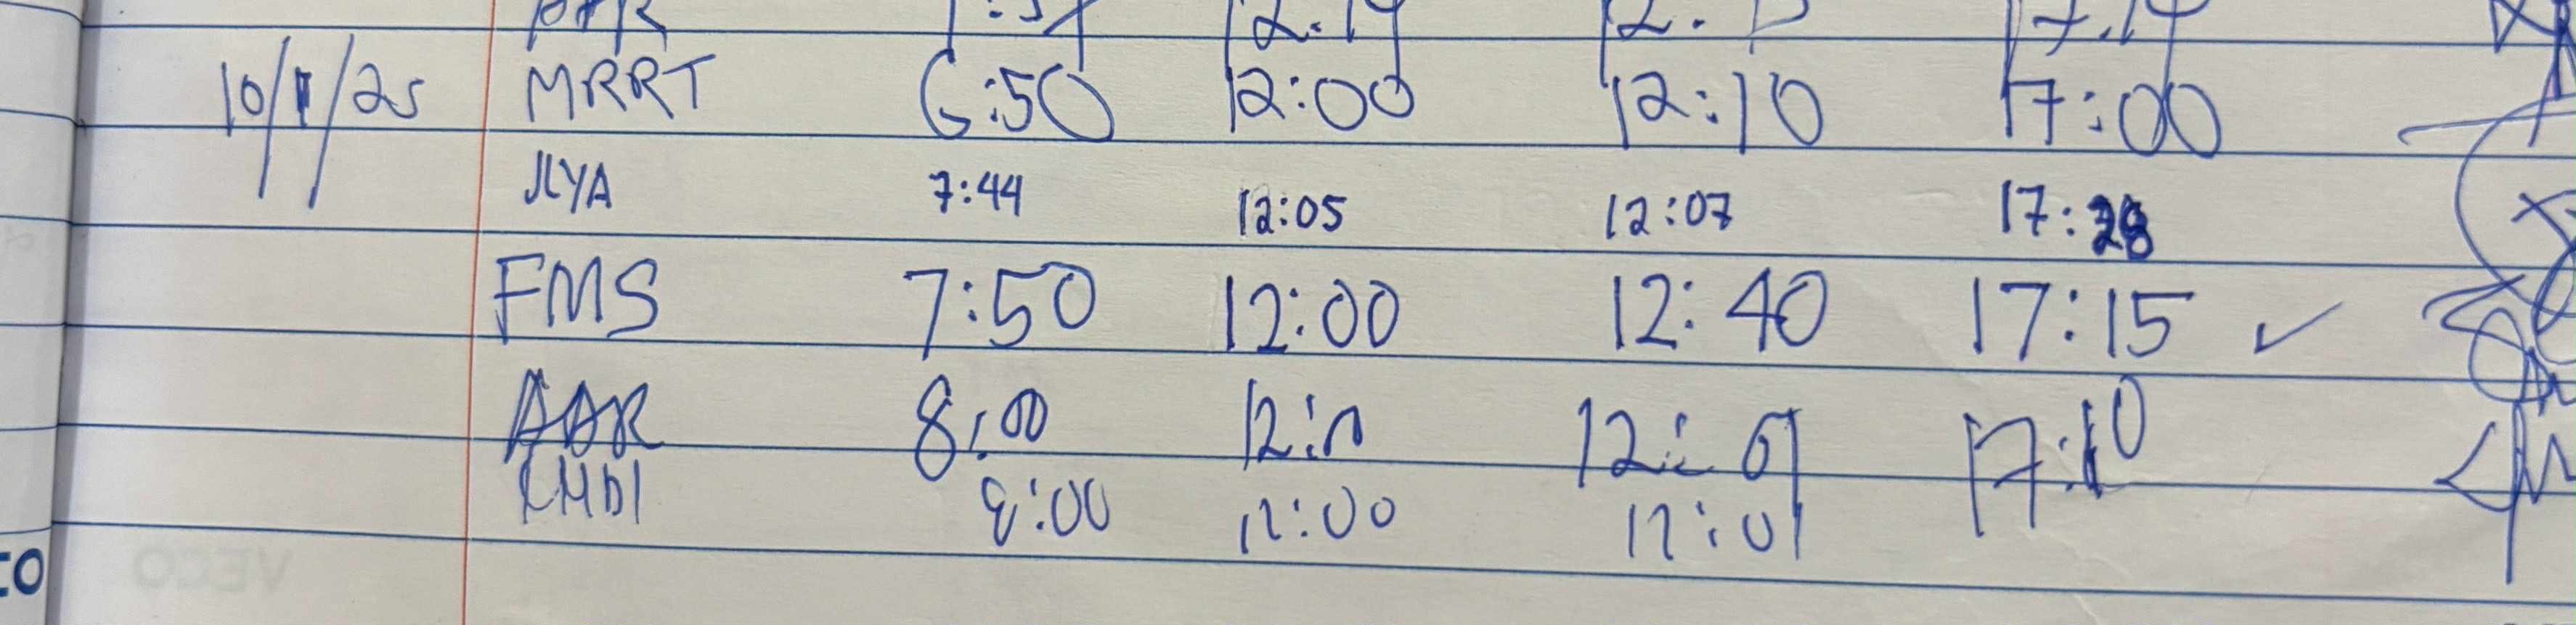 10/1/25 MRRT 6:50 12:00 12:10 17:00
JLYA 7:44 12:05 12:07 17:28
FMS 7:50 12:00 12:40 17:15 ✓
AAR 8:00 12:01 17:10
8:00 12:00 12:01
VECO